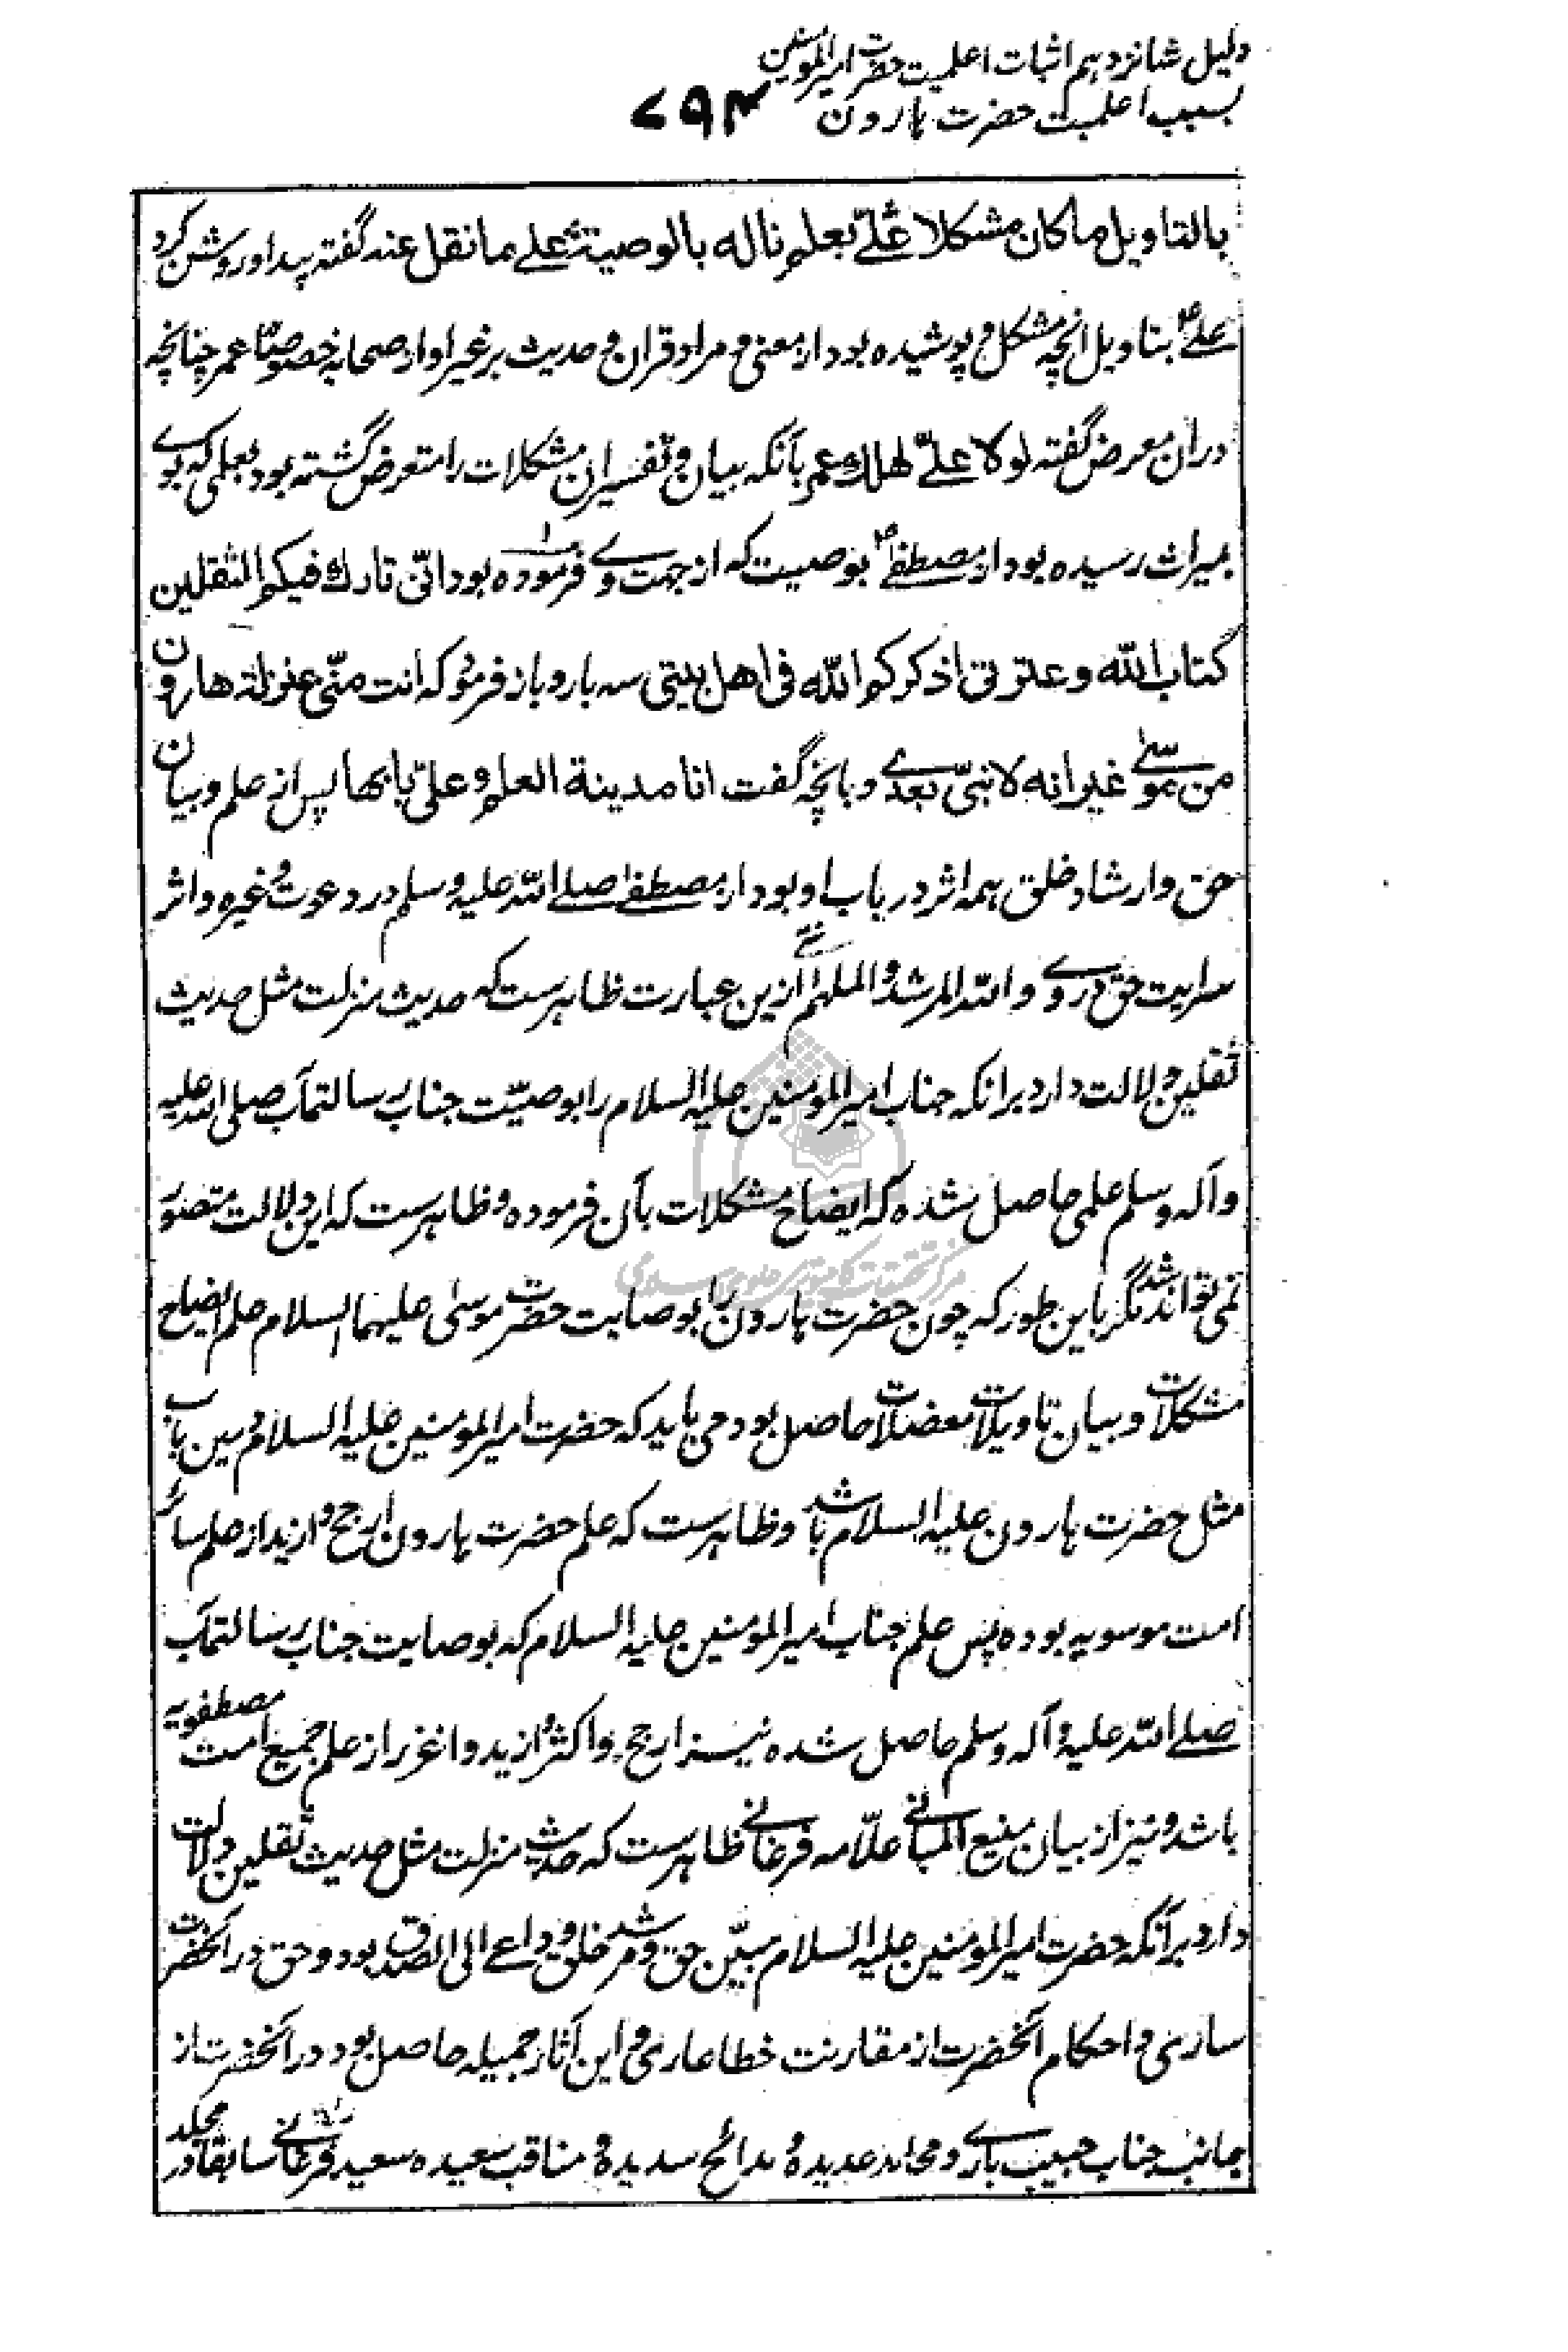 دلیل شانزدهم اثبات اعلمیت حضرت امیرالمومنین
بسبب اعلمیت حضرت هارون ۷۹۴
بالتاویل ماکان مشکلا علیّ بعلم ناله بالوصیته علی مانقل عنه گفته پیدا و روشن کرد
علی بتاویل انچه مشکل و پوشیده بود از معنی و مراد قران و حدیث بر غیر او از صحابه خصوصًا عمر چنانچه
دران معرض گفته لولا علیّ لهلك عمر بآنکه بیان و تفسیر ان مشکلات را متعرض گشته بود بعلمی که بوے
بمیراث رسیده بود از مصطفےٰ بوصیت که از جهت وے فرموده بود انّی تارك فیکم الثقلین
کتاب الله و عترتی اذکرکم الله فی اهل بیتی سه بار و باز فرمود که انت منّی بمنزلة هارون
من موسےٰ غیر انه لا نبیّ بعدے و بانچه گفت انا مدینة العلم و علیّ بابها پس از علم و بیان
حق و ارشاد خلق همه اثر در باب او بود از مصطفےٰ صلے الله علیه وسلم در دعوت و غیره و اثر
سرایت حق در وے و الله المرشد و الملهم ازین عبارت ظاهرست که حدیث منزلت مثل حدیث
ثقلین دلالت دارد برانکه جناب امیرالمومنین علیه السلام را بوصیّت جناب رسالتمآب صلی الله علیه
وآله وسلم علمی حاصل شده که ایضاح مشکلات بآن فرموده و ظاهرست که این دلالت متصور
نمی تواند شد مگر باین طور که چون حضرت هارون را بوصایت حضرت موسیٰ علیهما السلام علم ایضاح
مشکلات و بیان تاویلات معضلات حاصل بود می باید که حضرت امیرالمومنین علیه السلام درین باب
مثل حضرت هارون علیه السلام باشد و ظاهرست که علم حضرت هارون ارجح و ازید از علم سائر
امت موسویه بوده پس علم جناب امیرالمومنین علیه السلام که بوصایت جناب رسالتمآب
صلے الله علیه و آله وسلم حاصل شده نیز ارجح و اکثر و ازید و اغزر از علم جمیع امت مصطفویه
باشد و نیز از بیان منیع المبانے علّامه فرغانے ظاهرست که حدیث منزلت مثل حدیث ثقلین دلالت
دارد برآنکه حضرت امیرالمومنین علیه السلام مبیّن حق و مرشد خلق و داعے الی الصدق بود و حق در آنحضرت
ساری و احکام آنحضرت از مقارنت خطا عاری و این آثار جمیله حاصل بود در آنحضرت از
جانب جناب حبیب بارے و محامد عدیده و مدائح سدیده و مناقب سعیده سعید فرغانے سابقا در مجلد
مرکز تحقیقات کامپیوتری علوم اسلامی